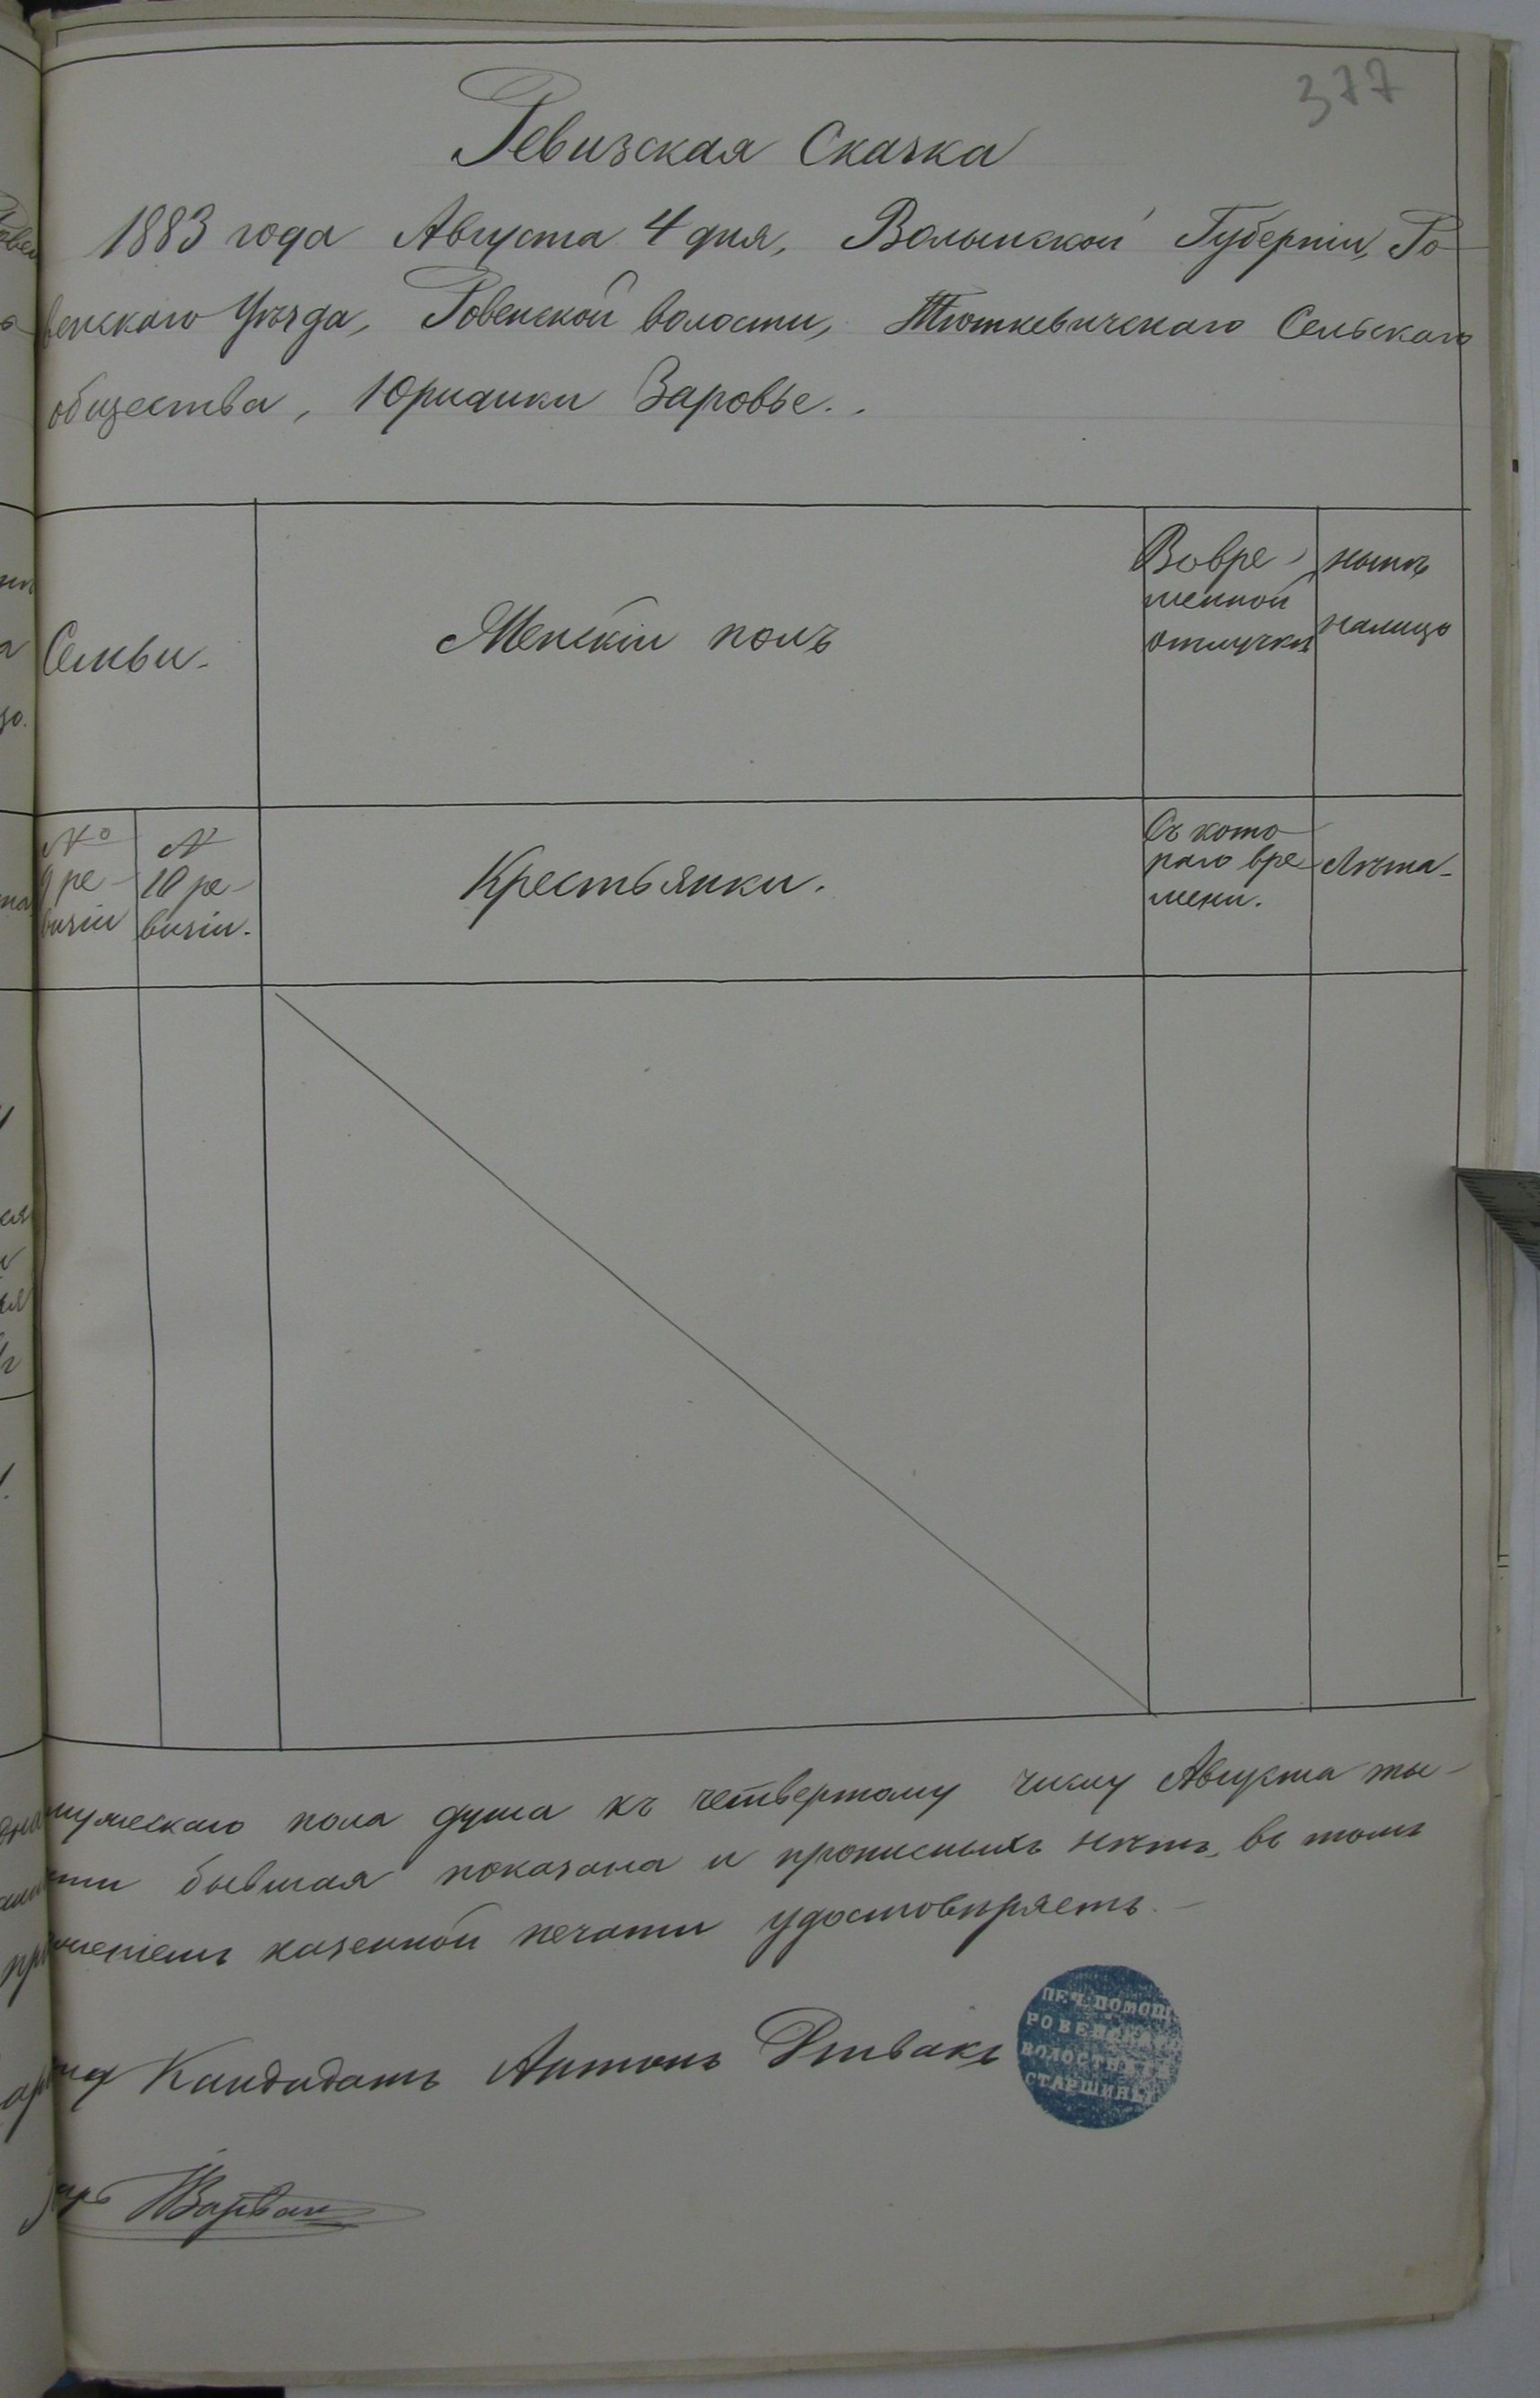 377
Ревизская Сказка
1883 года Августа 4 дня, Волынской Губерніи, Ро-
венскаго Уѣзда, Ровенской волости, Тюткевичскаго Сельскаго
общества, Юридики Заровье.
Семьи.
Женскій полъ
Во вре-
менной
отлучкѣ
нынѣ
налицо
№
9 ре-
визіи
№
10 ре-
визіи.
Крестьянки.
Съ кото-
раго вре-
мени.
Лѣта.
мужескаго пола душа къ четвертому числу Августа ты-
бывшая показана и прописныхъ нѣтъ, въ томъ
казенной печати удостовѣряетъ.
Кандидатъ Антонъ
ПЕЧ. ПОМОЩ.
РОВЕНСКАГО
ВОЛОСТНАГО
СТАРШИНЫ